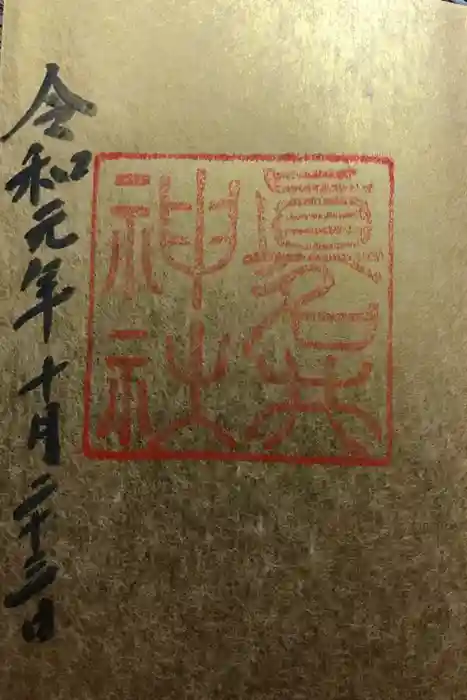 令和元年十月二十二日
神社